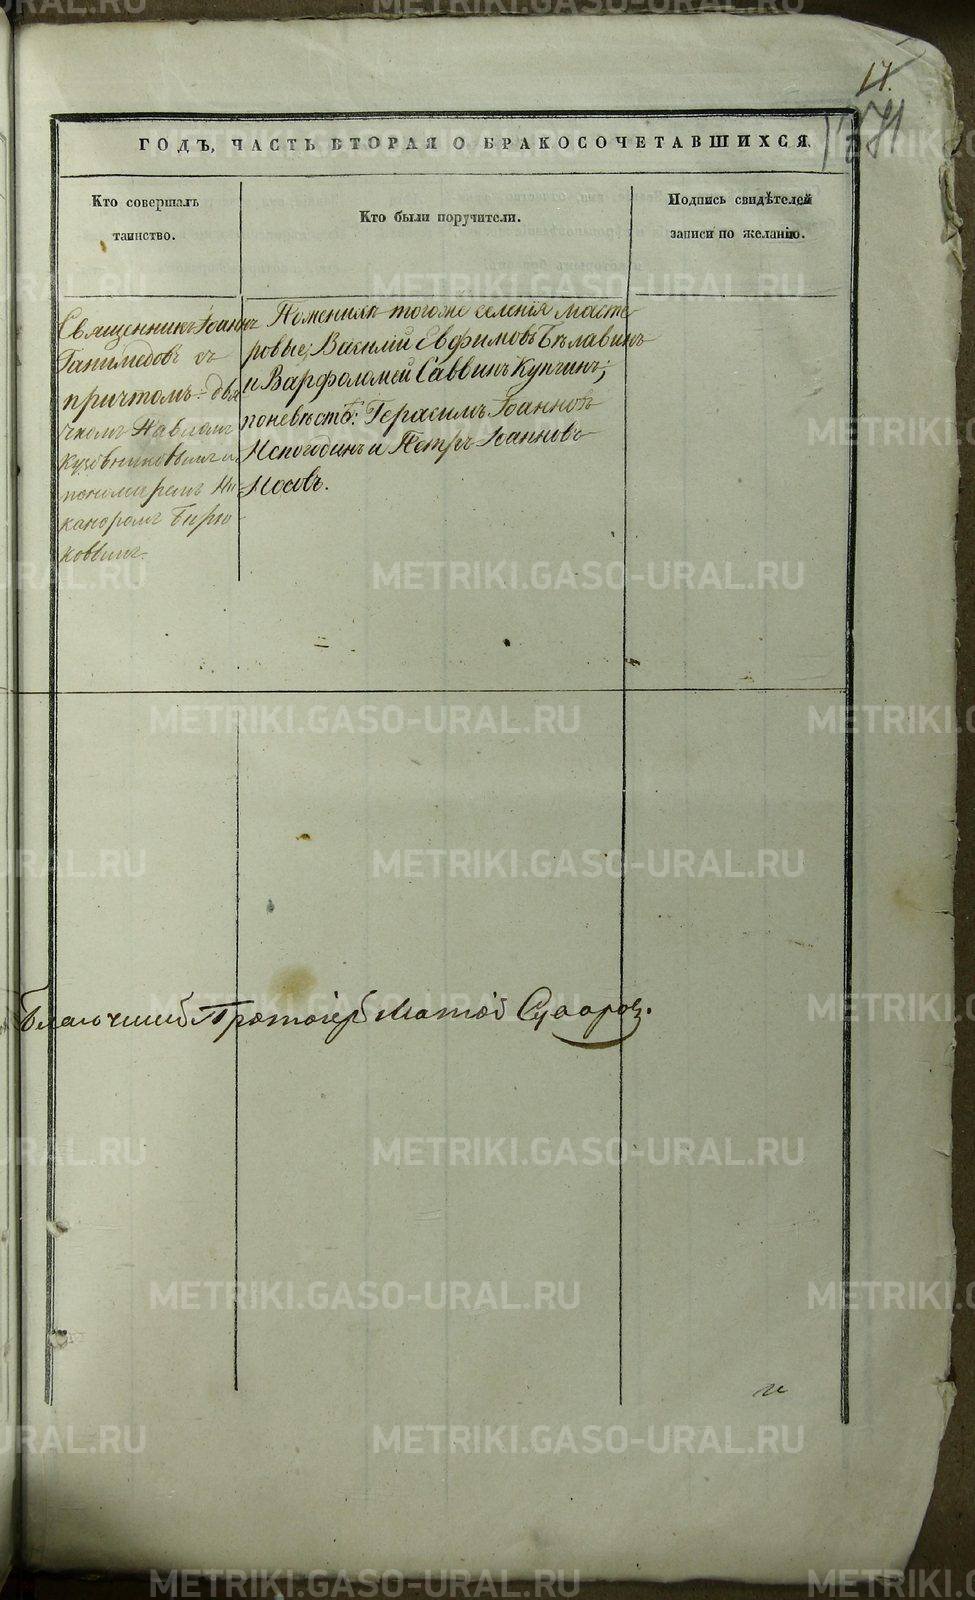 17.
ГОДЪ, ЧАСТЬ ВТОРАЯ О БРАКОСОЧЕТАВШИХСЯ.
Кто совершалъ
таинство.
Кто были поручители.
Подпись свидѣтелей
записи по желанію.
Священникъ Іоаннъ
Ганимедовъ съ
причтомъ: дья
чкомъ Павломъ
Кузовниковымъ и
пономаремъ Ни
каноромъ Бирю
ковымъ.
По женихѣ тогоже селенія масте
ровые; Василій Евфимовъ Бѣлавинъ
и Варфоломей Саввинъ Купчинъ;
поневѣстѣ: Герасимъ Іоанновъ
Испогодинъ и Петръ Іоанновъ
Носовъ.
Благочинный Протоіерей
METRIKI.GASO-URAL.RU